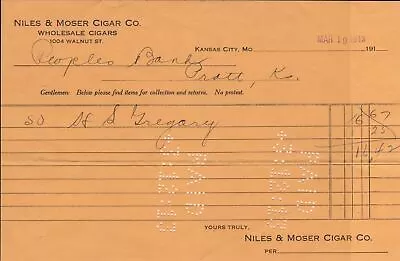 NILES & MOSER CIGAR CO.
WHOLESALE CIGARS
1004 WALNUT ST.
KANSAS CITY, MO MAR 19 1913 191
Peoples Bank
Pratt, Ks.
Gentlemen: Below please find items for collection and returns. No protest.
SD H S Gregary 16 67
25
16 42
PAID
PAID
YOURS TRULY,
NILES & MOSER CIGAR CO.
PER